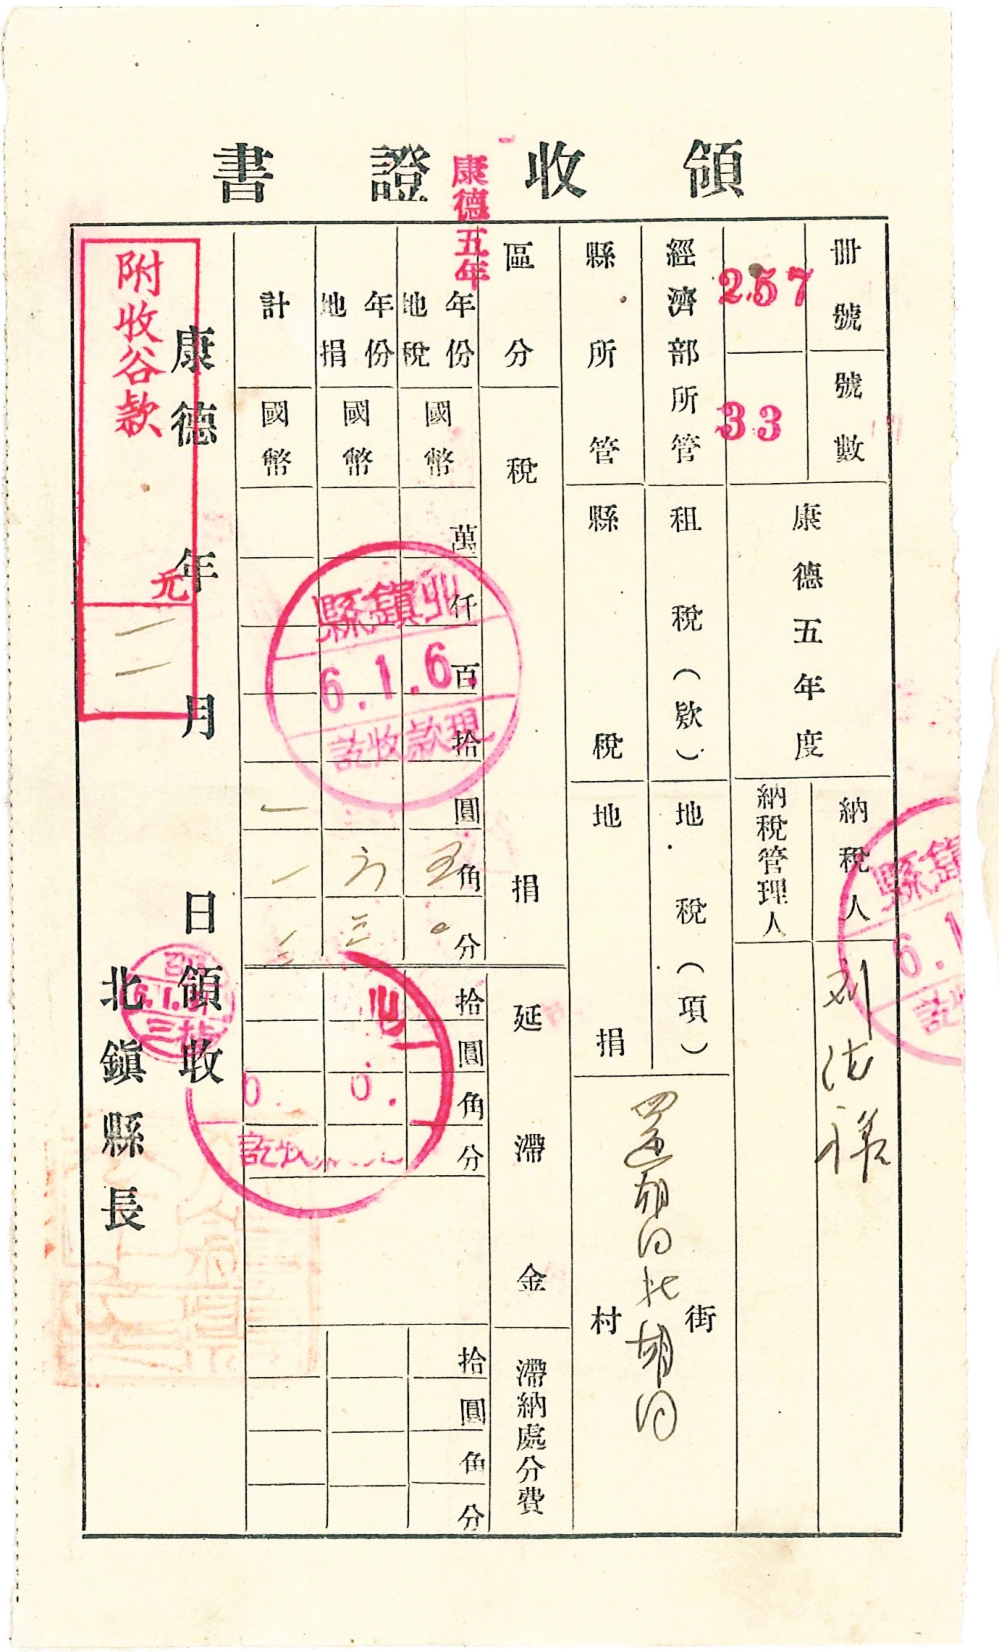 領收證書
康德五年
冊號
257
號數
33
康德五年度
納稅人
納稅管理人
經濟部所管
租稅(欵)
地稅(項)
縣所管
縣稅
地捐
街
村
區分
稅捐
延滯金
滯納處分費
年份地稅
國幣
萬仟百拾圓角分
五〇
拾圓角分
拾圓角分
年份地捐
國幣
六三
計
國幣
一一三
康德年月日領收
北鎮縣長
附收谷款
元
一一
北鎮縣
6.1.6.
現款收訖
鎮縣
6.1
訖
北
0. 0.
訖收